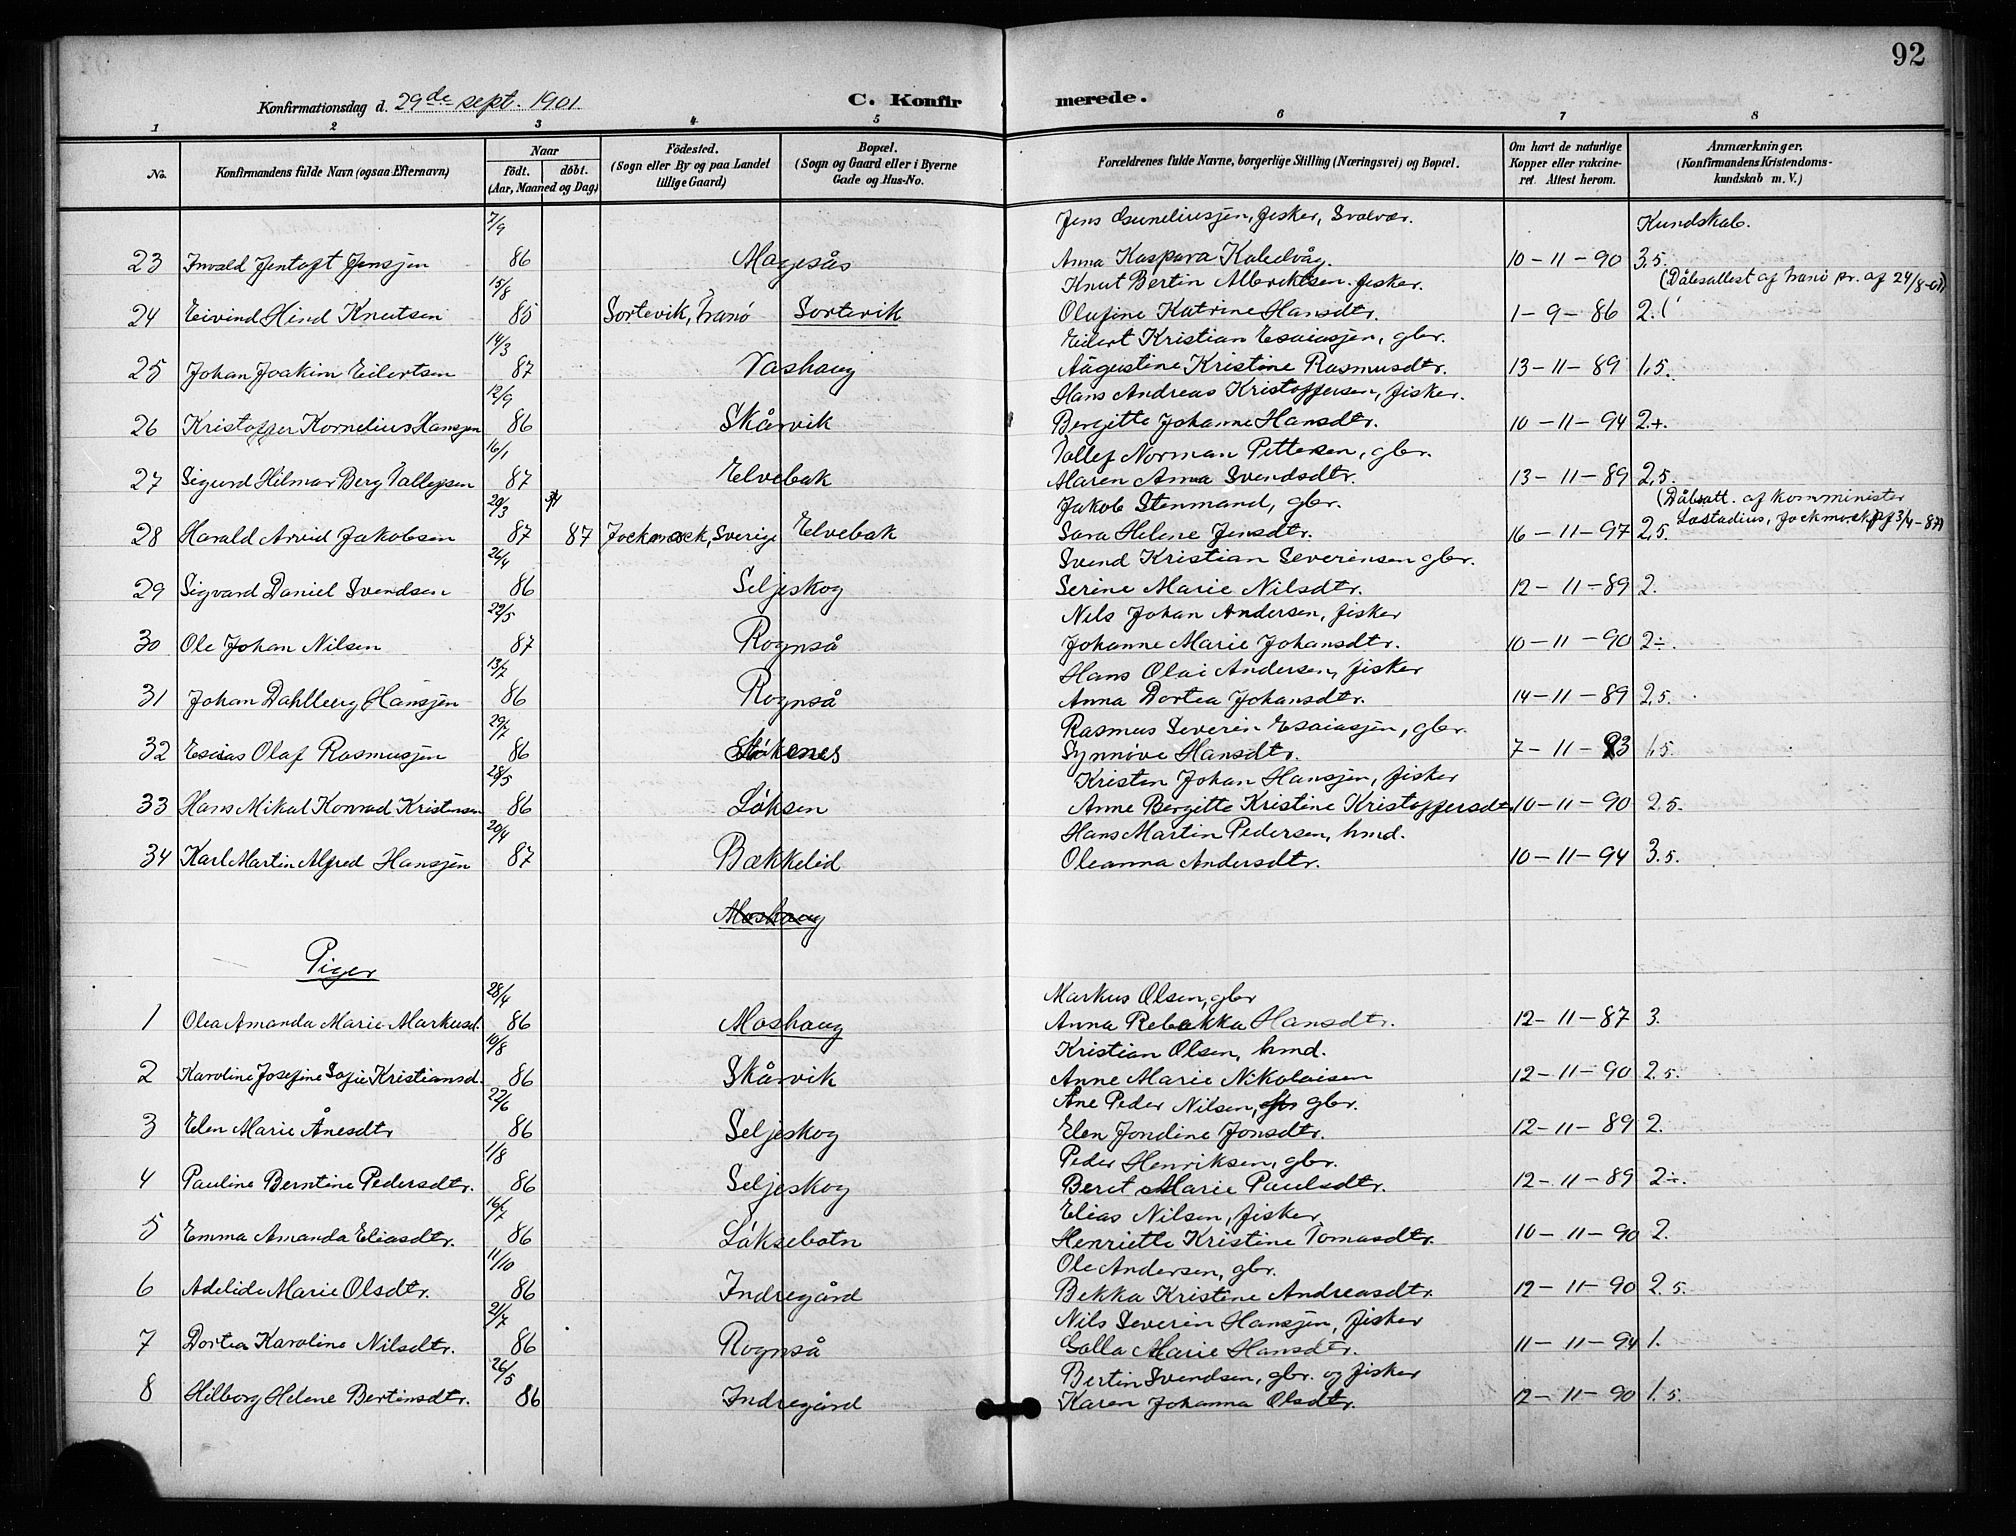 92
Konfirmationsdag d. 29de sept. 1901.
C. Konfirmerede.
1 2 3 4 5 6 7 8
No.
Konfirmandens fulde Navn (ogsaa Efternavn)
Naar
födt. döbt.
(Aar, Maaned og Dag)
Födested.
(Sogn eller By og paa Landet
tillige Gaard)
Bopæl.
(Sogn og Gaard eller i Byerne
Gade og Hus-No.
Forældrenes fulde Navne, borgerlige Stilling (Næringsvei) og Bopæl.
Om havt de naturlige
Kopper eller vakcine-
ret. Attest herom.
Anmærkninger.
(Konfirmandens Kristendoms-
kundskab m. V.)
7/9 Jens fisker, Svalvær. Kundskab.
23 Jentoft Jensjen 86 Mogesås Anna Kaspara 10-11-90 3,5.
15/8 Knut Bertin Albriktsen. fisker. (Dåbsattest af Tranö pr. af 24/8-01)
24 Eivind Hind Knutsen 85 Sortevik, Tranö Sortevik Olufine Katrine Hansdtr. 1-9-86 2.
14/3 Eilert Kristian Esaiasjen, gbr.
25 Johan Joakim Eilertsen 87 Vashaug Augustine Kristine Rasmusdtr. 13-11-89 1,5.
12/9 Hans Andreas Kristoffersen, fisker.
26 Kristoffer Kornelius Hansjen 86 Skårvik Bergitte Johanne Hansdtr. 10-11-94 2+.
16/1 Tollef Norman Pettersen, gbr.
27 Sigurd Hilmar Berg Tollefsen 87 Elvebak Maren Anna Svendsdtr. 13-11-89 2,5.
20/3 3/4 Jakob Stenmand, gbr. (Dåbsatt. af komminister
28 Harald Arvid Jakobsen 87 87 Jockmock, Sverige Elvebak Sara Helene Jensdtr. 16-11-97 2,5. Læstadius, Jockmock af 3/4-87)
26/4 Svend Kristian Severinsen gbr.
29 Sigvard Daniel Svendsen 86 Seljeskog Serine Marie Nilsdtr. 12-11-89 2.
22/5 Nils Johan Andersen, fisker
30 Ole Johan Nilsen 87 Rognså Johanne Marie Johansdtr. 10-11-90 2÷.
13/7 Hans Olai Andersen, fisker
31 Johan Dahlberg Hansjen 86 Rognså Anna Dortea Johansdtr. 14-11-89 2,5.
29/7 Rasmus Severin Esaiasjen, gbr.
32 Esaias Olaf Rasmusjen 86 Synnöve Hansdtr. 7-11-93 1,5.
28/5 Kristen Johan Hansjen, fisker
33 Hans Mikal Konrad Kristensen 86 Löksen Anne Bergitte Kristine Kristoffersdtr. 10-11-90 2.5.
20/4 Hans Martin Pedersen, hmd.
34 Karl Martin Alfred Hansjen 87 Bækkelid Oleanna Andersdtr. 10-11-94 3.5.
Moshaug
Piger
28/4 Markus Olsen, gbr
1 Olea Amanda Marie Markusd. 86 Moshaug Anna Rebekka Hansdtr. 12-11-87 3.
10/8 Kristian Olsen, hmd.
2 Karoline Josefine Sofie Kristiansd. 86 Skårvik Anne Marie Nikolaisen 12-11-90 2.5.
22/6 Åne Peder Nilsen, gbr.
3 Elen Marie Ånesdtr 86 Seljeskog Elen Jondine Jonsdtr. 12-11-89 2.
1/8 Peder Henriksen, gbr.
4 Pauline Berntine Pedersdtr. 86 Seljeskog Beret Marie Paulsdtr. 12-11-89 2÷.
16/7 Elias Nilsen, fisker
5 Emma Amanda Eliasdtr. 86 Löksebotn Henriette Kristine Tomasdtr. 10-11-90 2.
11/10 Ole Andersen, gbr.
6 Adelide Marie Olsdtr. 86 Indregård Bekka Kristine Andreasdtr. 12-11-90 2.5.
21/7 Nils Severin Hansjen, fisker
7 Dortea Karoline Nilsdtr. 86 Rognså Golla Marie Hansdtr. 11-11-94 1.
26/5 Bertin Svendsen, gbr. og fisker
8 Hilborg Helene Bertinsdtr. 86 Indregård Karen Johanna Olsdtr. 12-11-90 1.5.